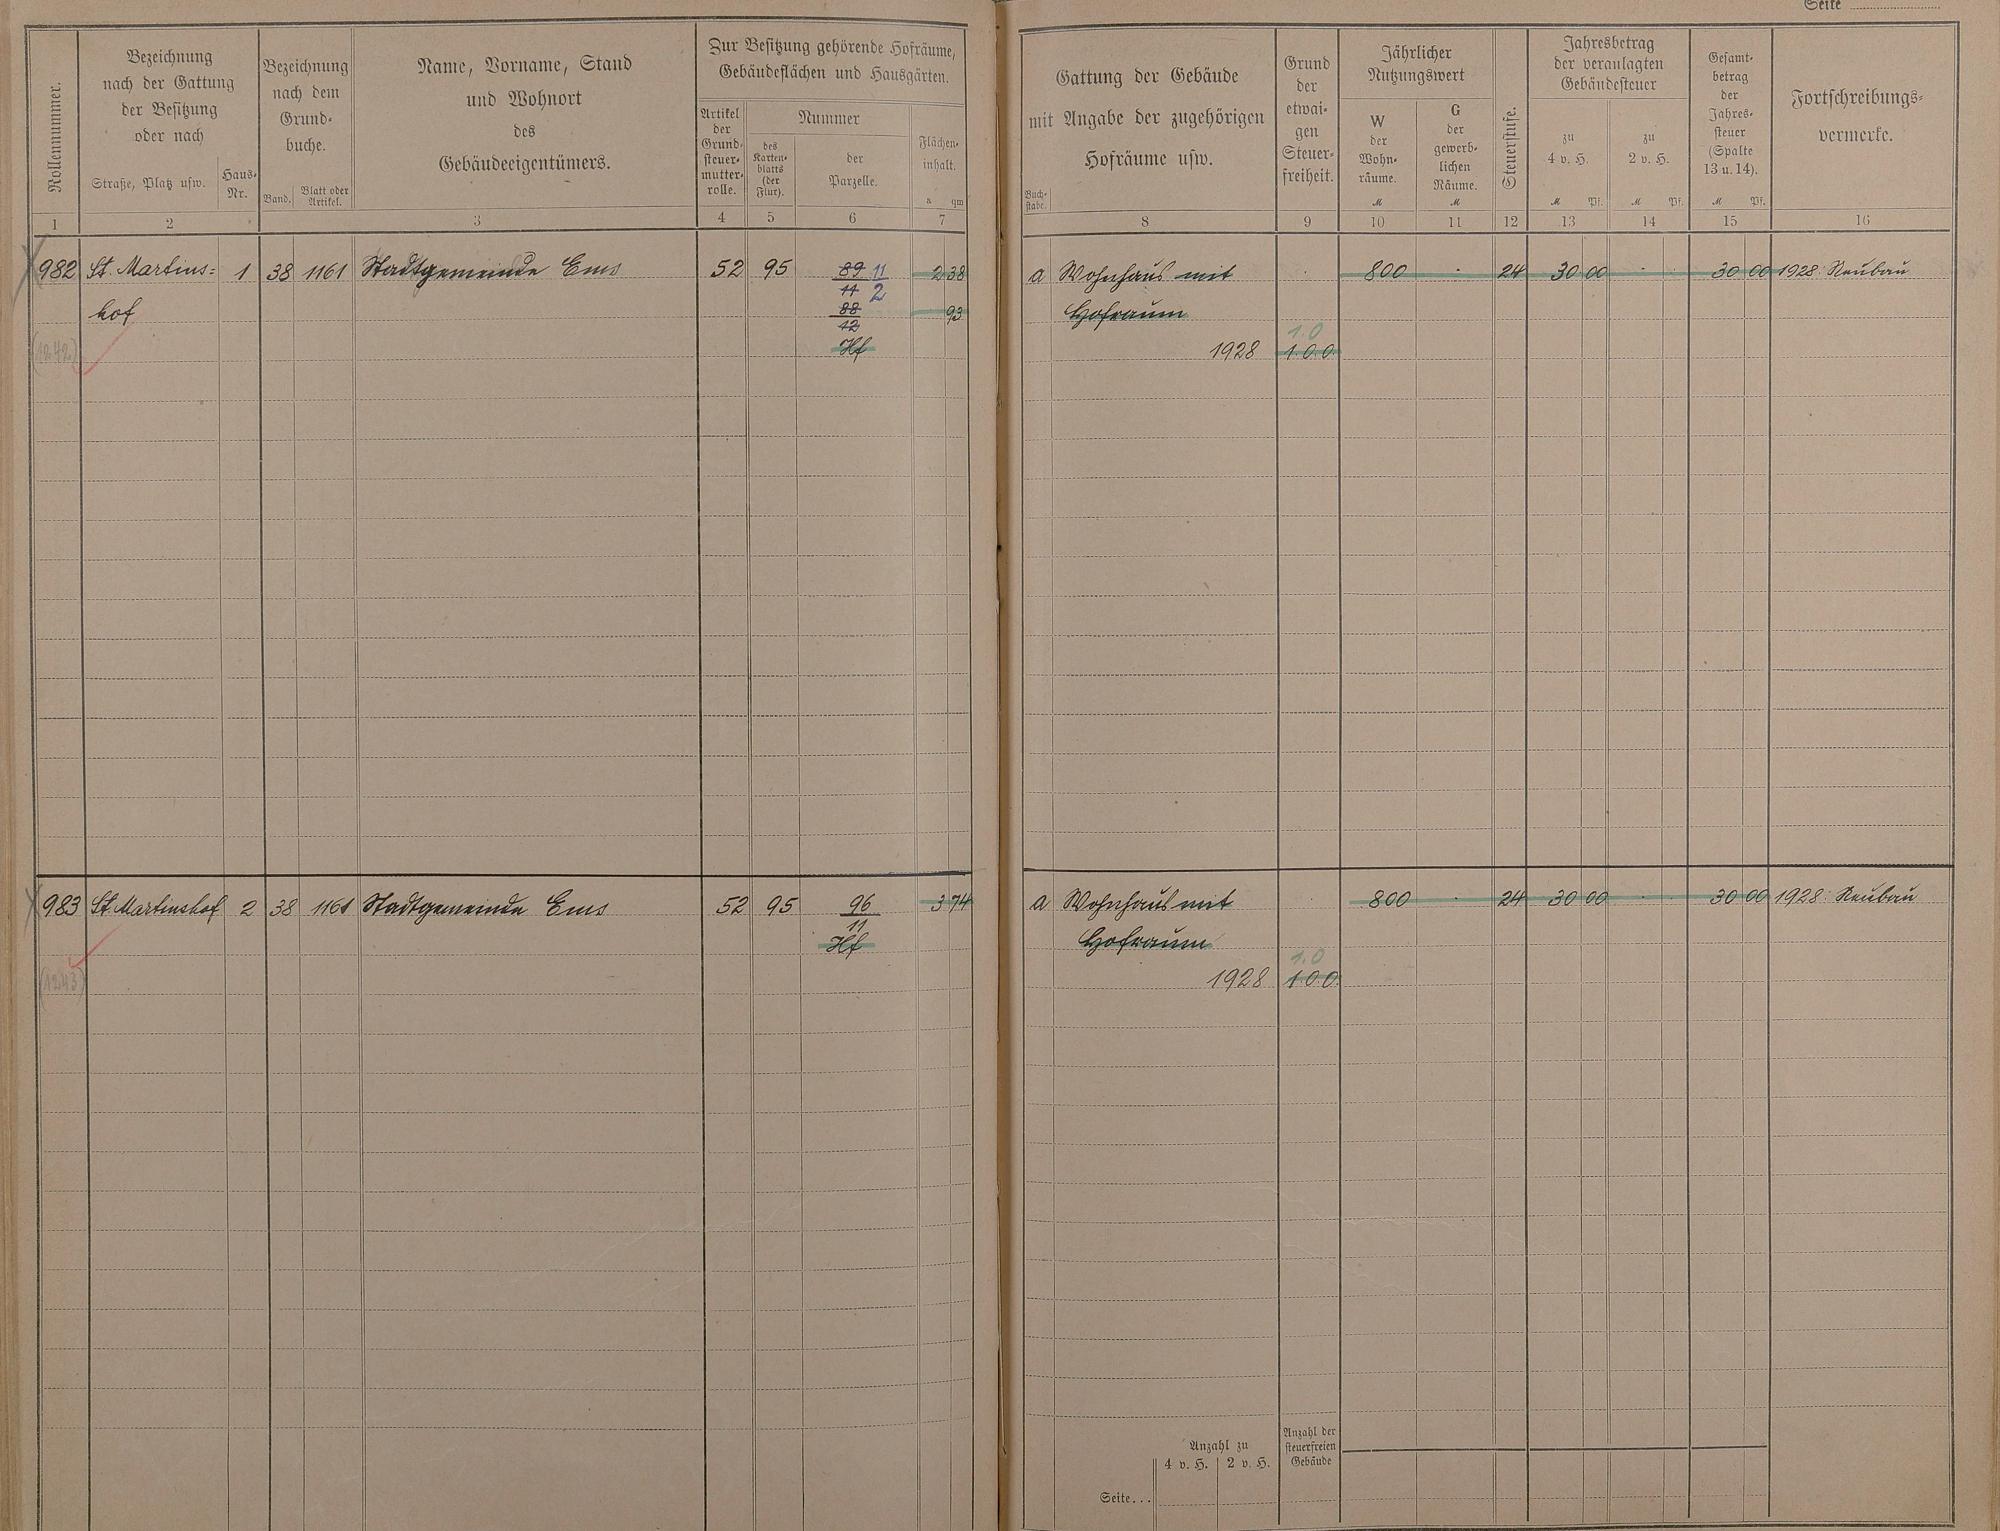 Seite
Rollennummer.
Bezeichnung
nach der Gattung
der Besitzung
oder nach
Straße, Platz usw.
Haus-
Nr.
Bezeichnung
nach dem
Grund-
buche.
Band.
Blatt oder
Artikel.
Name, Vorname, Stand
und Wohnort
des
Gebäudeeigentümers.
Zur Besitzung gehörende Hofräume,
Gebäudeflächen und Hausgärten.
Artikel
der
Grund-
steuer-
mutter-
rolle.
Nummer
des
Karten-
blatts
(der
Flur).
der
Parzelle.
Flächen-
inhalt.
a qm
Gattung der Gebäude
mit Angabe der zugehörigen
Hofräume usw.
Buch-
stabe.
Grund
der
etwai-
gen
Steuer-
freiheit.
Jährlicher
Nutzungswert
W
der
Wohn-
räume.
M
G
der
gewerb-
lichen
Räume.
M
Steuerstufe.
Jahresbetrag
der veranlagten
Gebäudesteuer
zu
4 v. H.
M Pf.
zu
2 v. H.
M Pf.
Gesamt-
betrag
der
Jahres-
steuer
(Spalte
13 u. 14).
M Pf.
Fortschreibungs-
vermerke.
1 2 3 4 5 6 7 8 9 10 11 12 13 14 15 16
982 St. Martins- 1 38 1161 Stadtgemeinde Ems 52 95 89 11 2 38 a Wohnhaus mit 800 · 24 30 00 · 30 00 1928: Neubau
11 2
hof 88 93 Hofraum
12
1.0
(1242) Hf 1928 1.0.0.
983 St. Martinshof 2 38 1161 Stadtgemeinde Ems 52 95 96 3 74 a Wohnhaus mit 800 · 24 30 00 · 30 00 1928: Neubau
11
Hf Hofraum
1.0
(1243) 1928 1.0.0.
Anzahl zu
4 v. H. 2 v. H.
Anzahl der
steuerfreien
Gebäude
Seite...